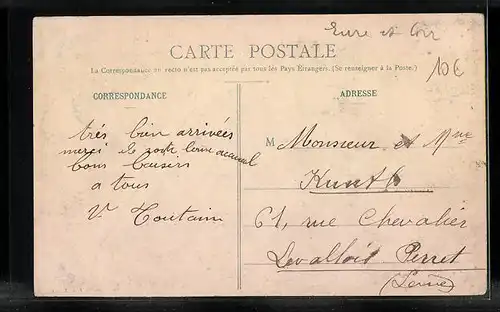 Eure et Loir
10€
CARTE POSTALE
La Correspondance au recto n'est pas acceptée par tous les Pays Étrangers. (Se renseigner à la Poste.)
CORRESPONDANCE
ADRESSE
très bien arrivées
merci de votre bonne accueil
bons baisers
a tous
Vve Toutain
M Monsieur et Mme
Kuntz
61, rue Chevalier
Levallois Perret
(Seine)